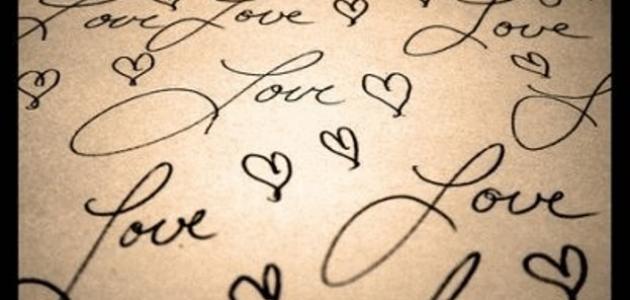 Love Love Love
Love
Love Love